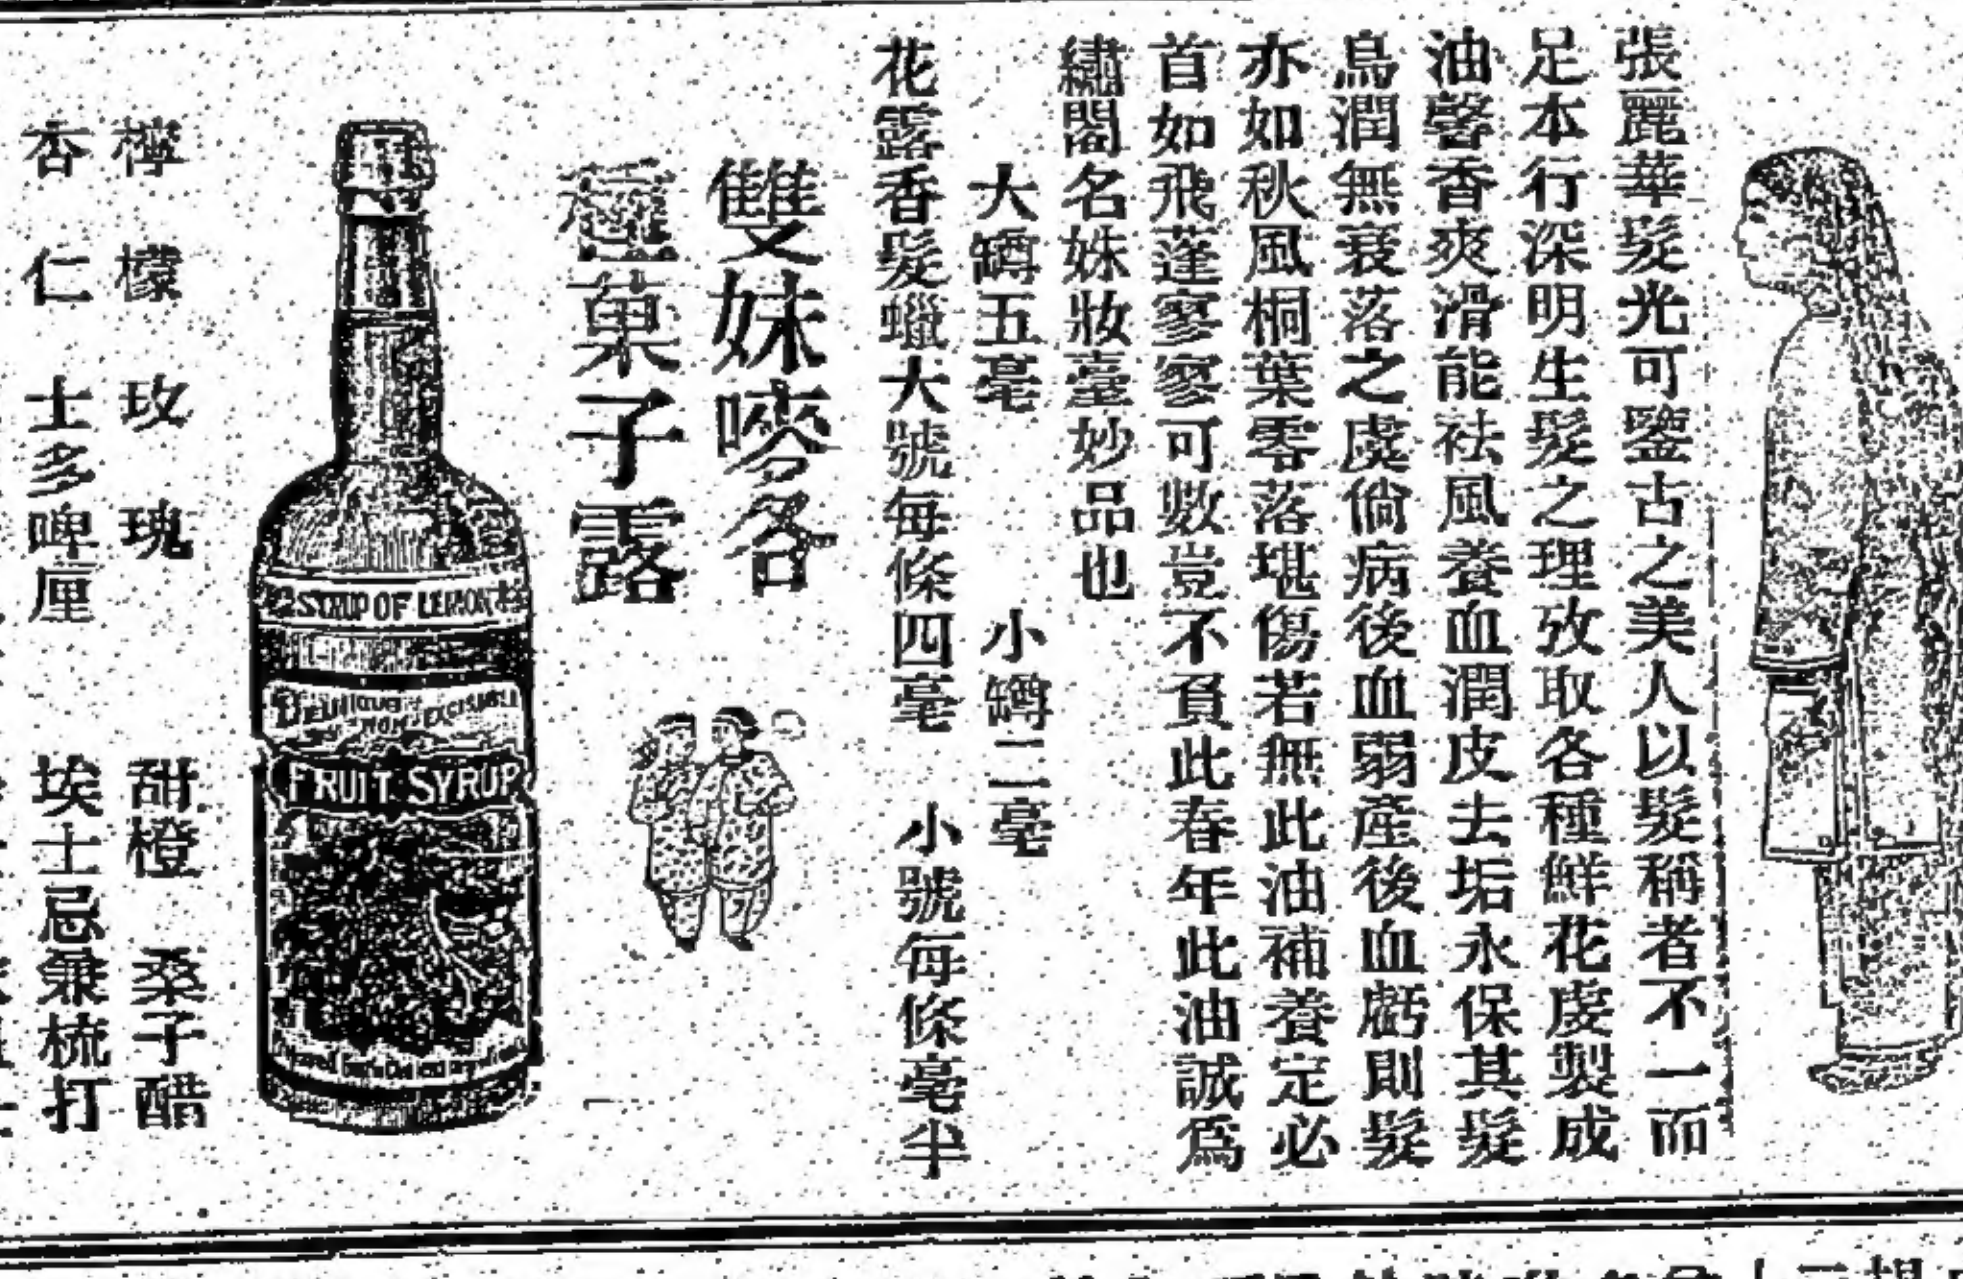 張麗華髮光可鑒古之美人以髮稱者不一而
足本行深明生髮之理攷取各種鮮花虔製成
油馨香爽滑能袪風養血潤皮去垢永保其髮
烏潤無衰落之虞倘病後血弱產後血虧則髮
亦如秋風桐葉零落堪傷若無此油補養定必
首如飛蓬寥寥可數豈不負此春年此油誠爲
繡閣名姝妝臺妙品也
大罇五毫 小罇二毫
花露香髮蠟大號每條四毫 小號每條毫半
雙妹嘜各
種菓子露
SYRUP OF LEMON
DELICIOUS
NON-EXCISABLE
FRUIT SYRUP
檸檬 玫瑰 甜橙 桑子醋
杏仁 士多啤厘 埃士忌兼梳打